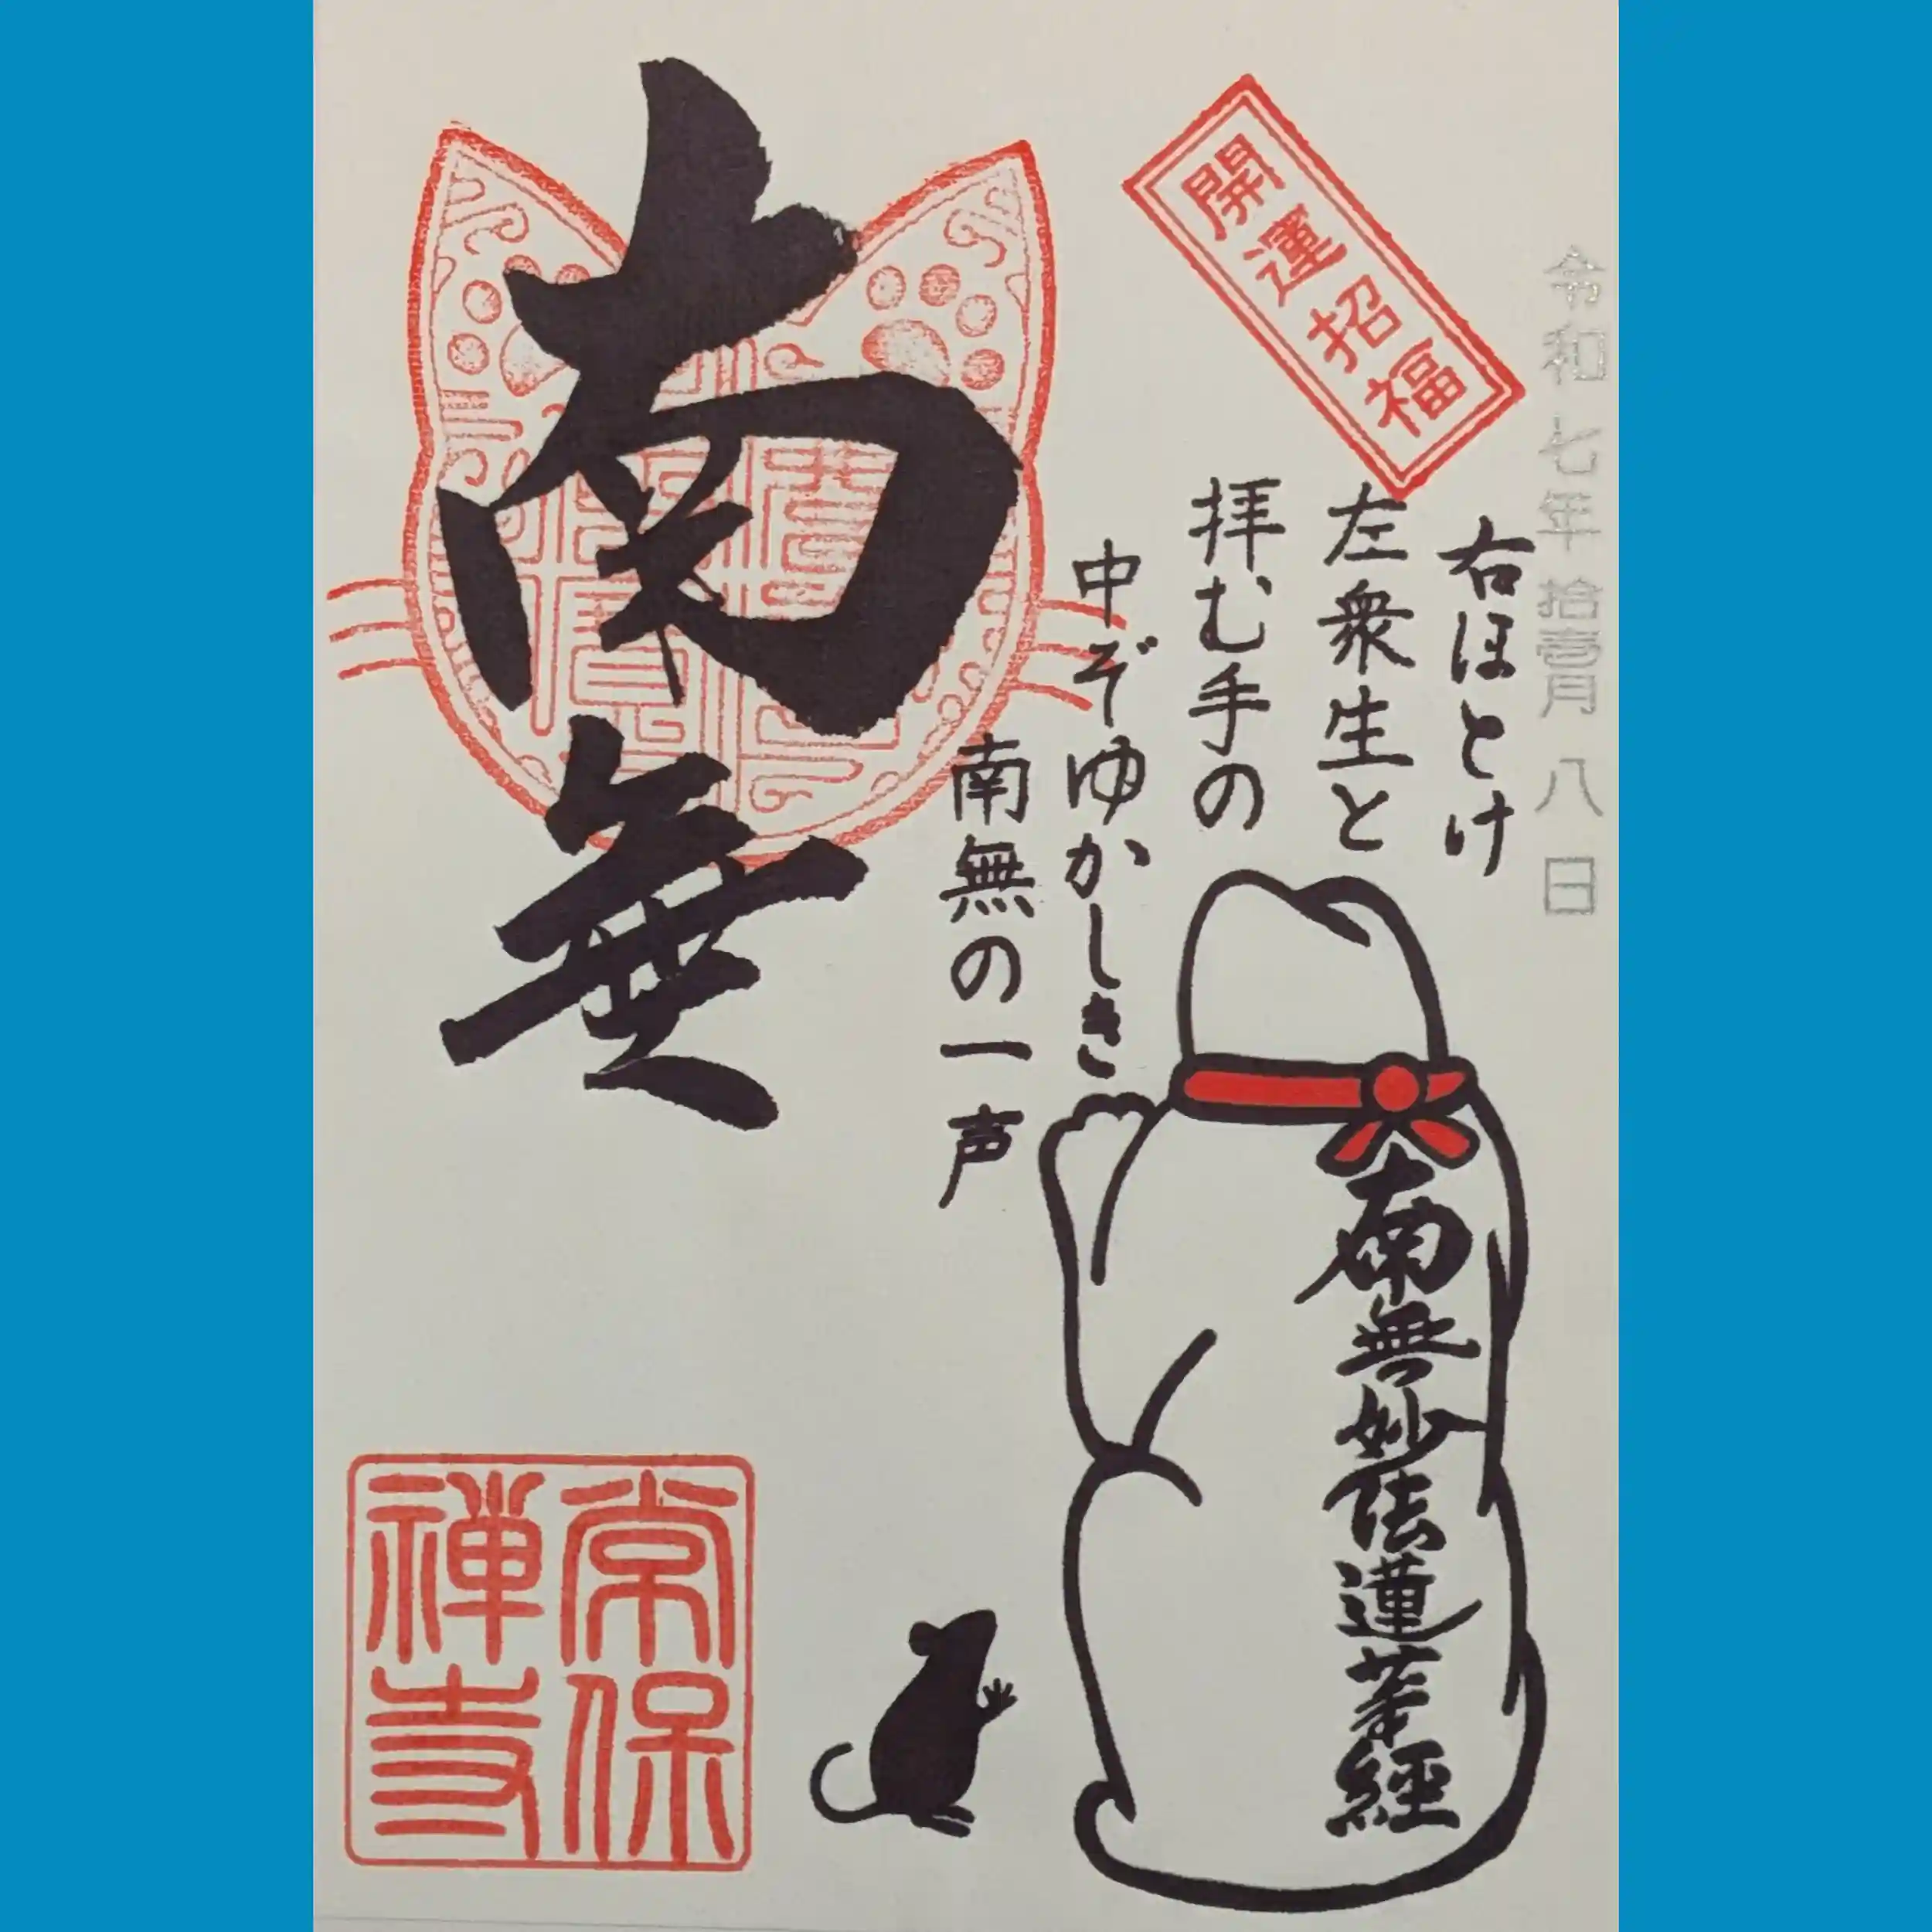 令和七年拾壱月八日
開運招福
右ほとけ
左衆生と
拝む手の
中ぞゆかしき
南無の一声
南無妙法蓮華経
南無
常保
禅寺